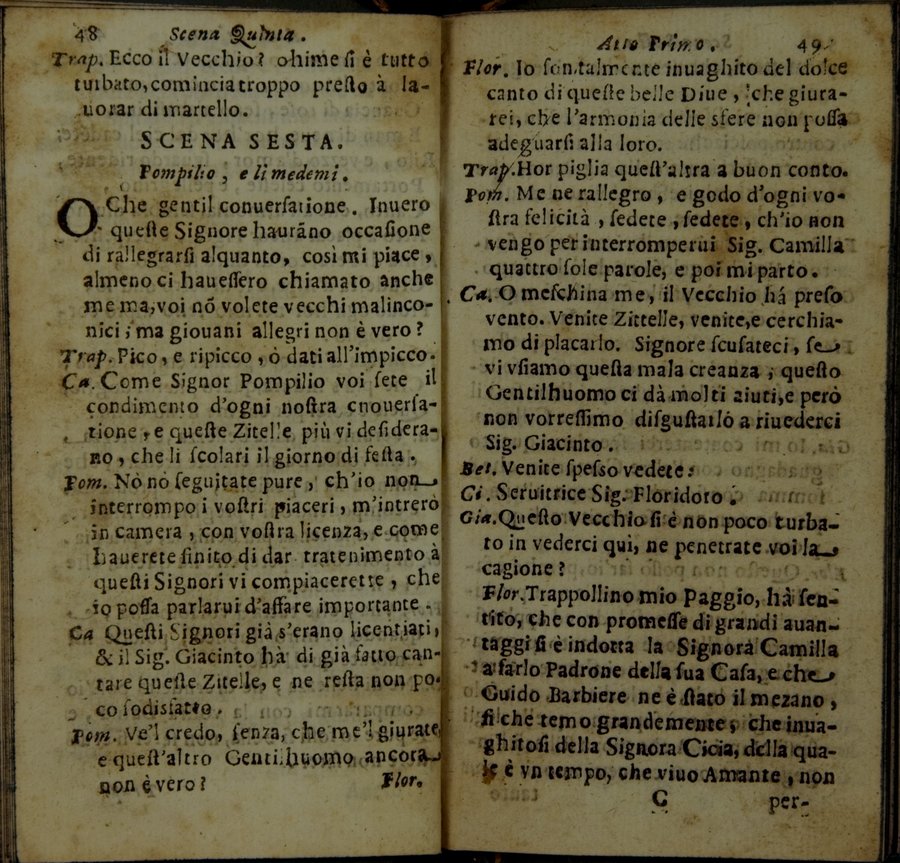 48 Scena Quinta.
Trap. Ecco il Vecchio? ohime ſi è tutto
turbato, comincia troppo preſto à la-
uorar di martello.
SCENA SESTA.
Pompilio, e li medemi.
O Che gentil conuerſatione. Inuero
queſte Signore haurãno occaſione
di rallegrarſi alquanto, così mi piace,
almeno ci haueſſero chiamato anche
me ma, voi nõ volete vecchi malinco-
nici, ma giouani allegri non è vero?
Trap. Pico, e ripicco, ò dati all'impicco.
Ca. Come Signor Pompilio voi ſete il
condimento d'ogni noſtra cnouerſa-
tione, e queſte Zitelle più vi deſidera-
no, che li ſcolari il giorno di feſta.
Pom. Nò nò ſeguitate pure, ch'io non
interrompo i voſtri piaceri, m'intrerò
in camera, con voſtra licenza, e come
hauerete finito di dar tratenimento à
queſti Signori vi compiacerette, che
io poſſa parlarui d'affare importante.
Ca Queſti Signori già s'erano licentiati,
& il Sig. Giacinto hà di già fatto can-
tare queſte Zitelle, e ne reſta non po-
co ſodisfatto.
Pom. Ve'l credo, ſenza, che me'l giurate
e queſt'altro Gentilhuomo ancora
non è vero? Flor.
Atto Primo. 49
Flor. Io ſon talmente inuaghito del dolce
canto di queſte belle Diue, che giura-
rei, che l'armonia delle sfere non poſſa
adeguarſi alla loro.
Trap. Hor piglia queſt'altra a buon conto.
Pom. Me ne rallegro, e godo d'ogni vo-
ſtra felicità, ſedete, ſedete, ch'io non
vengo per interromperui Sig. Camilla
quattro ſole parole, e poi mi parto.
Ca. O meſchina me, il Vecchio há preſo
vento. Venite Zittelle, venite, e cerchia-
mo di placarlo. Signore ſcuſateci, ſe
vi vſiamo queſta mala creanza, queſto
Gentilhuomo ci dà molti aiuti, e però
non vorreſſimo diſguſtarlo a riuederci
Sig. Giacinto.
Bet. Venite ſpeſſo vedete:
Ci. Seruitrice Sig. Floridoro.
Gia. Queſto Vecchio ſi è non poco turba-
to in vederci qui, ne penetrate voi la
cagione?
Flor. Trappollino mio Paggio, hà ſen-
tito, che con promeſſe di grandi auan-
taggi ſi è indotta la Signora Camilla
a farlo Padrone della ſua Caſa, e che
Guido Barbiere ne è ſtato il mezano,
ſi che temo grandemente, che inua-
ghitoſi della Signora Cicia, della qua-
le è vn tempo, che viuo Amante, non
G per-